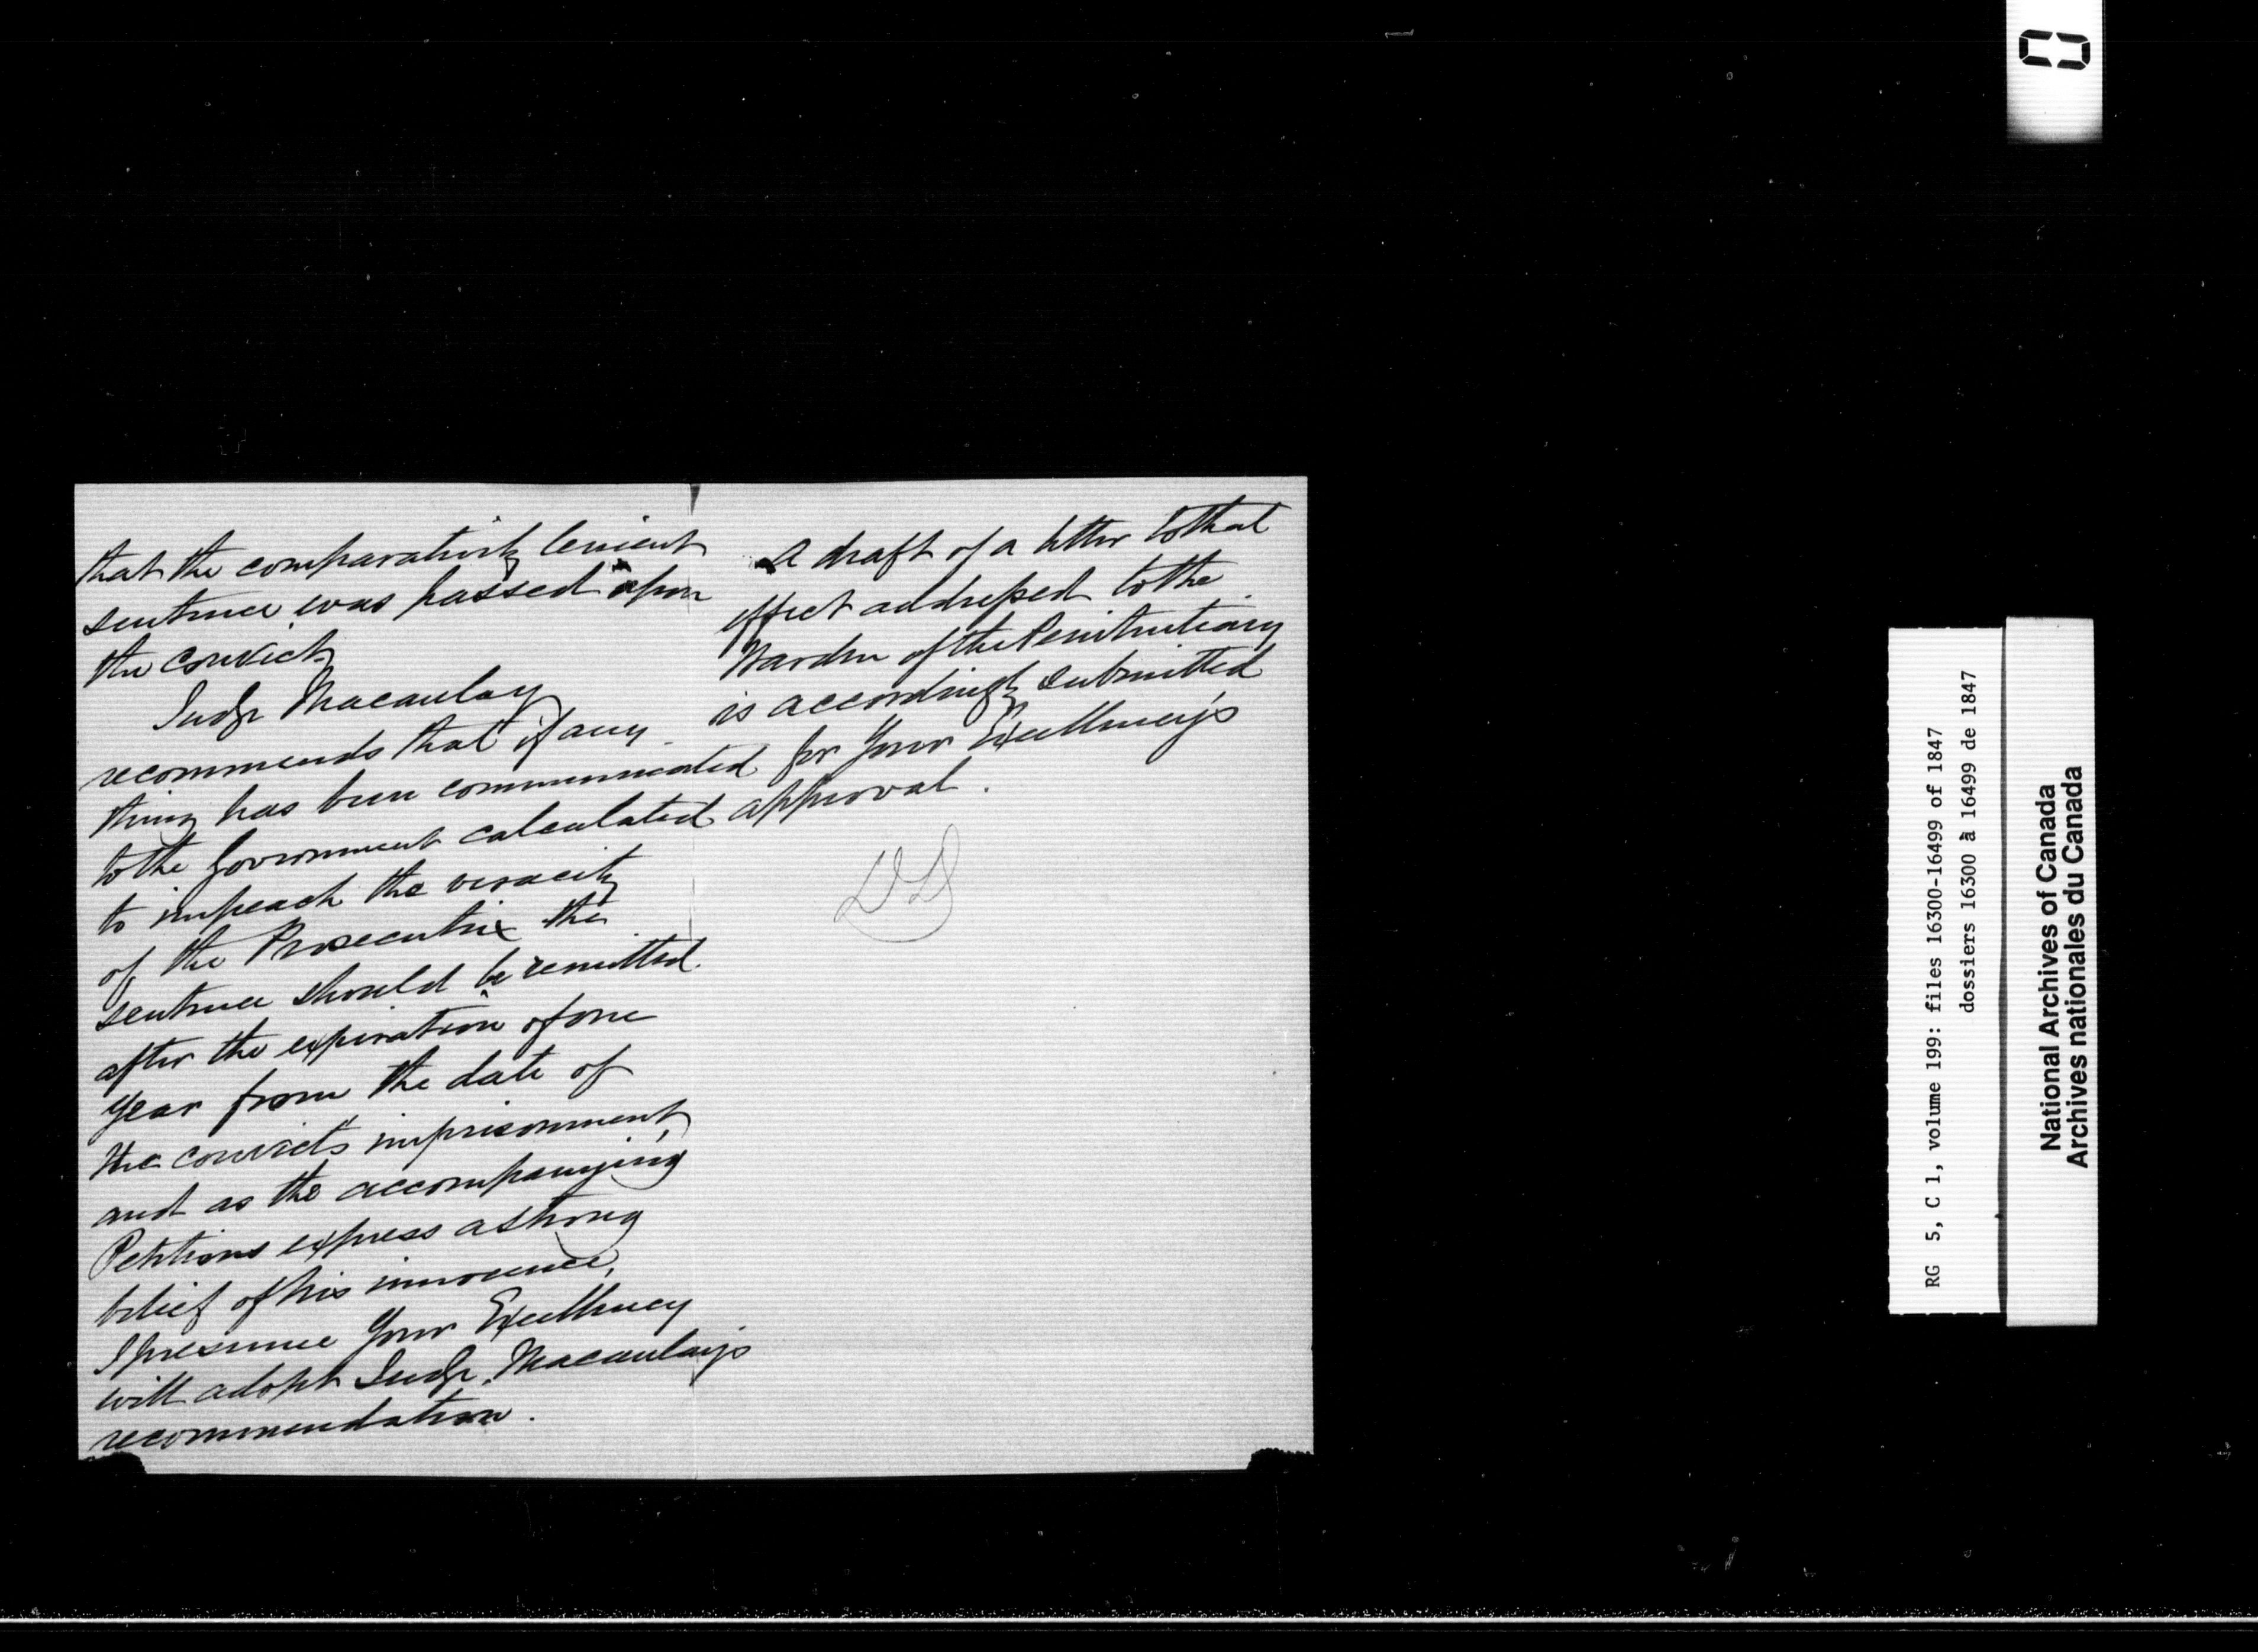 that the comparatively lenient
sentence was passed upon
the convict
Judge Macaulay
recommends that if any
thing has been communicated
to the Government calculated
to impeach the veracity
of the Prosecutrix the
sentence should be remitted
after the expiration of one
year from the date of
the convicts imprisonment,
and as the accompanying
Petitions express a strong
belief of his innocence,
I presume Your Excellency
will adopt Judge Macaulay's
recommendation.
A draft of a letter to that
effect addressed to the
Warden of the Penitentiary
is accordingly submitted
for Your Excellency's
approval.
RG 5, C 1, volume 199: files 16300-16499 of 1847
dossiers 16300 à 16499 de 1847
National Archives of Canada
Archives nationales du Canada